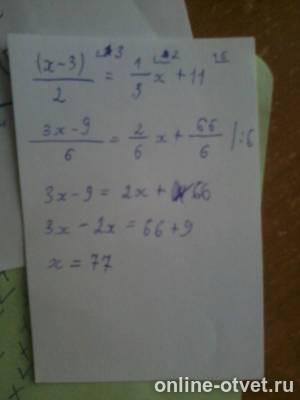 (x-3)/2 = 1/3 x + 11
3x-9/6 = 2/6 x + 66/6 /:6
3x-9 = 2x+ 66
3x-2x=66+9
x=77
online-otvet.ru